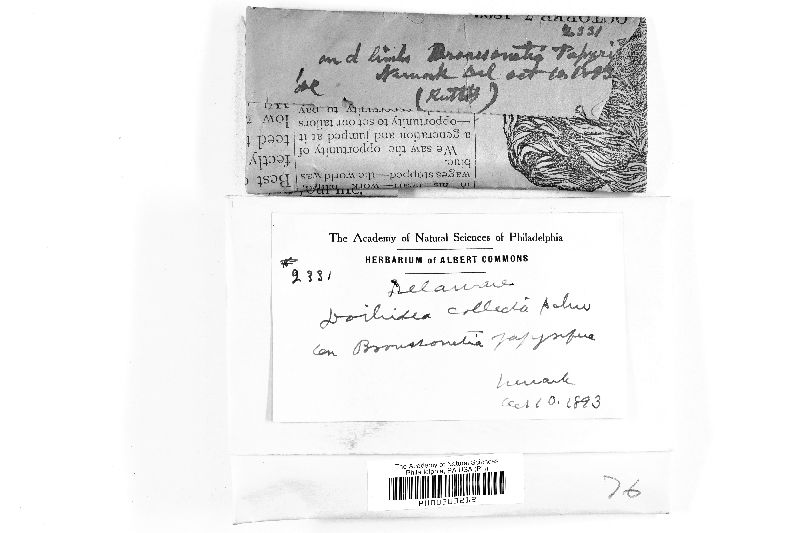 OCTOBER 7, 189
2331
and limbs Broussonetia Papyri
Newark Del oct 10 1893
(Rutter)
low
teed
fectly
Best
—opportunity to set our tailors
a generation and jumped at it
We saw the opportunity of
blue.
wages stopped—the world was
The Academy of Natural Sciences of Philadelphia
HERBARIUM of ALBERT COMMONS
# 2331
Delaware
Dothidea collecta Schw
on Broussonetia papyrifera
Newark
Oct 10. 1893
The Academy of Natural Sciences
Philadelphia, PA USA (PH)
76